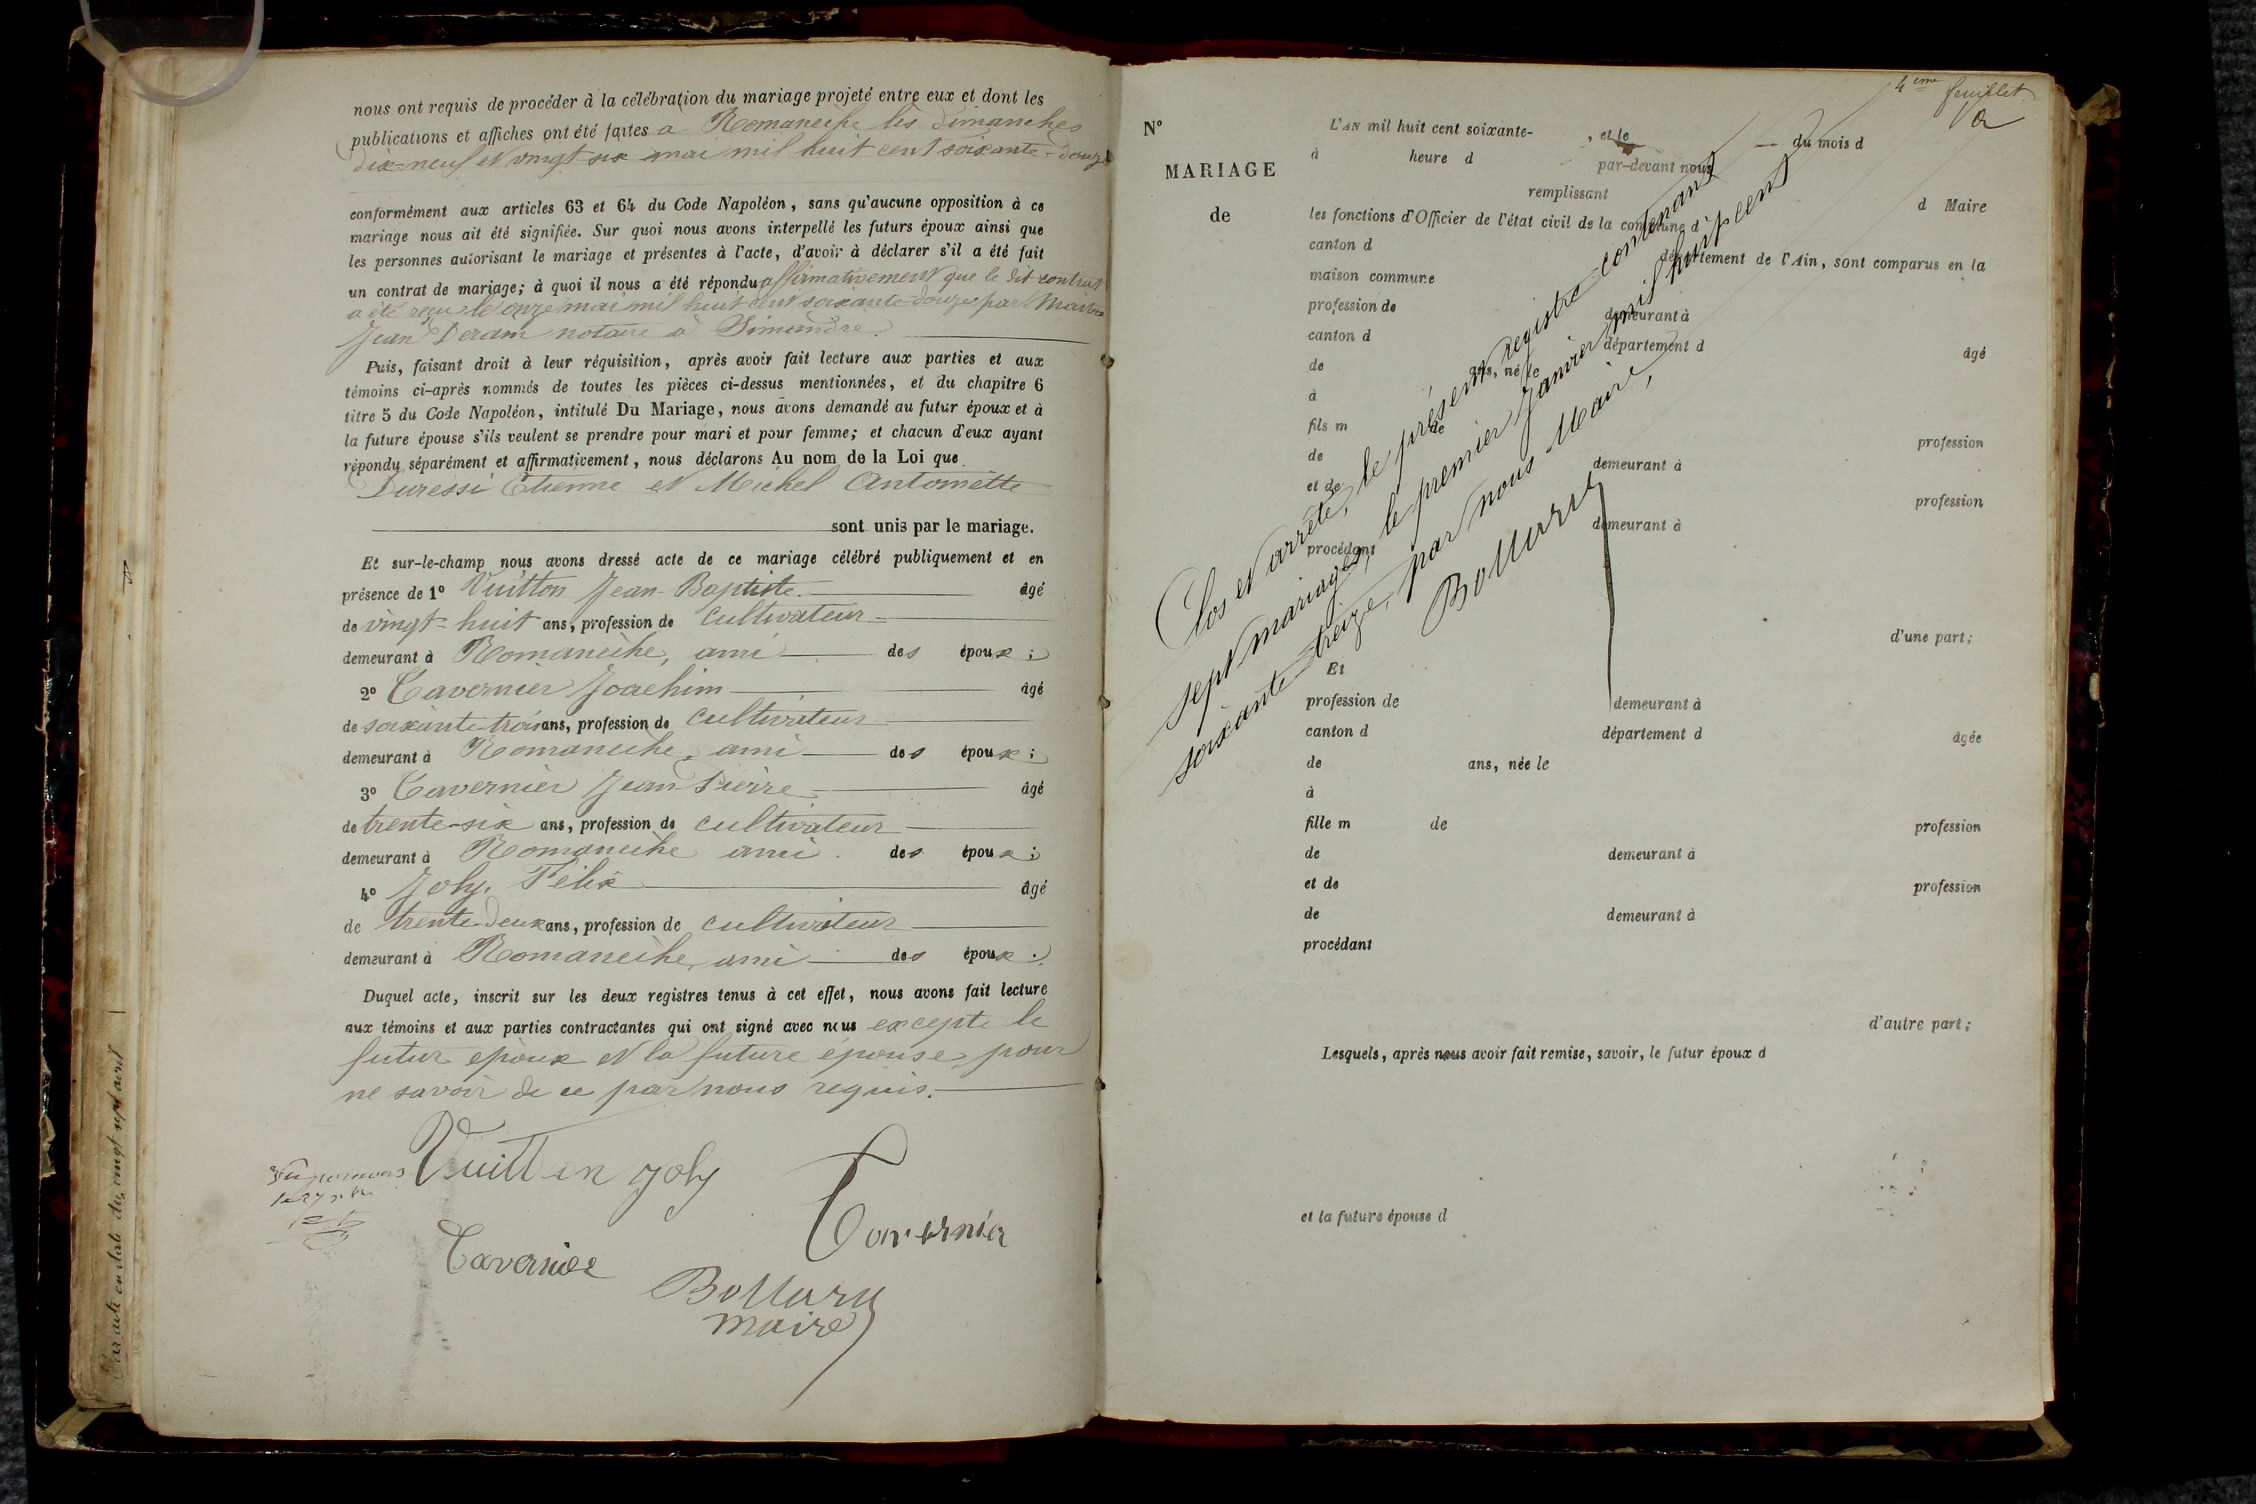 nous ont requis de procéder à la célébration du mariage projeté entre eux et dont les
publications et affiches ont été faites à Romanèche les dimanches
dix-neuf et vingt six mai mil huit cent soixante-douze
conformément aux articles 63 et 64 du Code Napoléon, sans qu'aucune opposition à ce
mariage nous ait été signifiée. Sur quoi nous avons interpellé les futurs époux ainsi que
les personnes autorisant le mariage et présentes à l'acte, d'avoir à déclarer s'il a été fait
un contrat de mariage; à quoi il nous a été répondu affirmativement que le dit contrat
a été reçu le onze mai mil huit cent soixante-douze par Maitre
Jean notaire à Simandre.
Puis, faisant droit à leur réquisition, après avoir fait lecture aux parties et aux
témoins ci-après nommés de toutes les pièces ci-dessus mentionnées, et du chapitre 6
titre 5 du Code Napoléon, intitulé Du Mariage, nous avons demandé au futur époux et à
la future épouse s'ils veulent se prendre pour mari et pour femme; et chacun d'eux ayant
répondu séparément et affirmativement, nous déclarons Au nom de la Loi que
Duressi Etienne et Michel Antoinette
sont unis par le mariage.
Et sur-le-champ nous avons dressé acte de ce mariage célébré publiquement et en
présence de 1° Vuitton Jean-Baptiste âgé
de vingt-huit ans, profession de cultivateur
demeurant à Romanèche, ami des époux;
2° Tavernier Joachim âgé
de soixante trois ans, profession de cultivateur
demeurant à Romanèche, ami des époux;
3° Tavernier Jean Pierre âgé
de trente-six ans, profession de cultivateur
demeurant à Romanèche ami des époux;
4° Joly Félix âgé
de trente deux ans, profession de cultivateur
demeurant à Romanèche, ami des époux.
Duquel acte, inscrit sur les deux registres tenus à cet effet, nous avons fait lecture
aux témoins et aux parties contractantes qui ont signé avec nous excepté le
futur époux et la future épouse, pour
ne savoir de ce par nous requis.
Vuitton Joly
Tavernier
Tavernier
Bollury
maire
4eme feuillet
N°
MARIAGE
de
L'AN mil huit cent soixante- , et le du mois d
à heure d par-devant nous
remplissant d Maire
les fonctions d'Officier de l'état civil de la commune d
canton d département de l'Ain, sont comparus en la
maison commune
profession de demeurant à
canton d département d âgé
de ans, né le
à
fils m de profession
de demeurant à
et de profession
demeurant à
procédant
d'une part;
Clos et arrêté, le présent registre contenant
sept mariages, le premier Janvier mil huit cent
soixante-treize, par nous Maire,
Bollury
Et
profession de demeurant à
canton d département d âgée
de ans, née le
à
fille m de profession
de demeurant à
et de profession
de demeurant à
procédant
d'autre part;
Lesquels, après nous avoir fait remise, savoir, le futur époux d
et la future épouse d